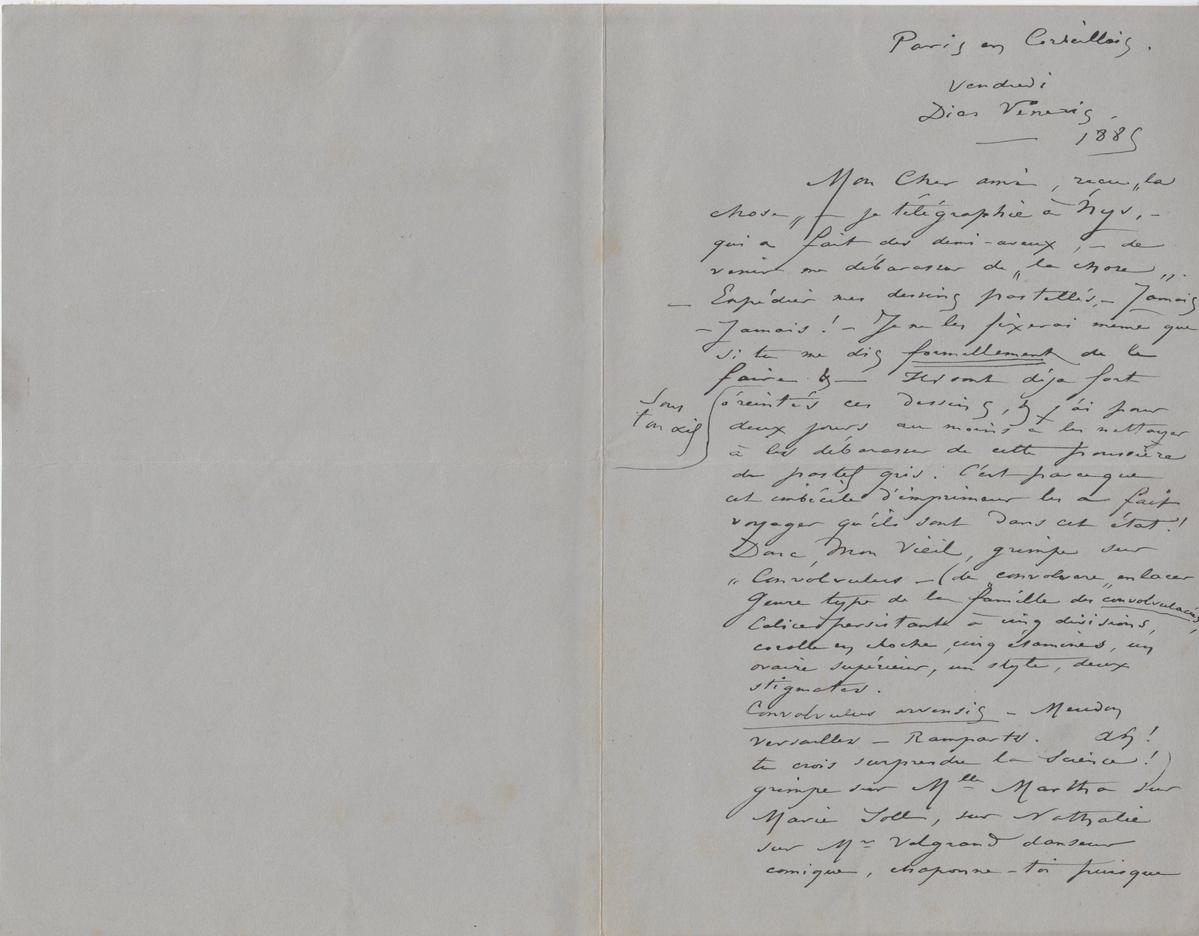 Paris en Corbeillois.
Vendredi
Dies Veneris.
1885
Mon Cher ami, reçu „la
chose„ — je télégraphie à Nys, –
qui a fait des demi-aveux, – de
venir me débarasser de „la chose„.
— Expédier mes dessins pastellés, – Jamais
– Jamais! – Je ne les fixerai même que
si tu me dis formellement de le
faire & — Ils sont déja fort
éreintés ces dessins, & j'ai pour
Sous
ton œil
deux jours au moins à les nettoyer
à les débarasser de cette poussière
du pastel gris. C'est parceque
cet imbécile d'imprimeur les a fait
voyager qu'ils sont dans cet état!
Donc, Mon Vieil, grimpe sur
„Convolvulus – (de „convolvere„ enlacer
Genre type de la famille des convolvulacés,
Calice persistante à cinq divisions,
corolle en cloche, cinq étamines, un
ovaire supérieur, un style, deux
stigmates.
Convolvulus arvensis – Meudon
Versailles – Remparts. Ah!
tu crois surprendre la Science!)
grimpe sur Mlle Martha sur
Marie Soll, sur Nathalie
sur Mr Valgrand danseur
comique, chaponne-toi puisque